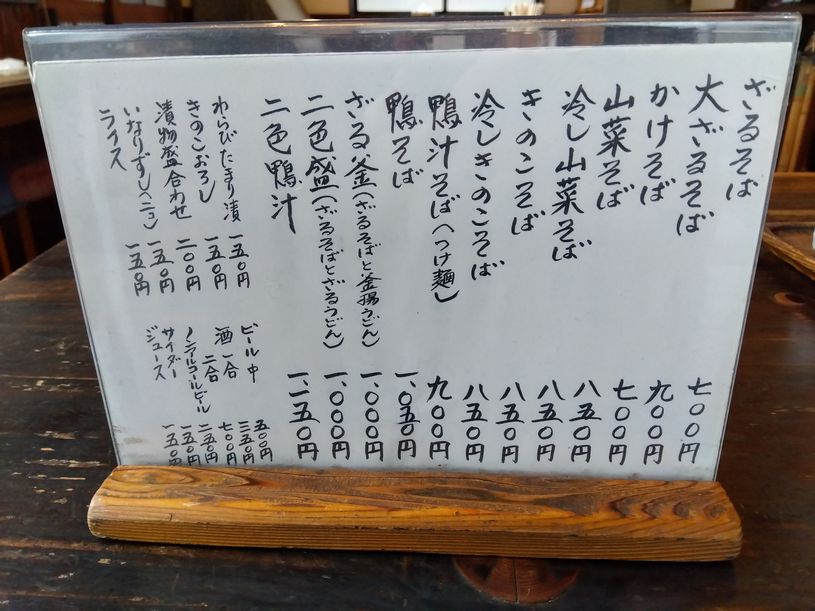 ざるそば 七〇〇円
大ざるそば 九〇〇円
かけそば 七〇〇円
山菜そば 八五〇円
冷し山菜そば 八五〇円
きのこそば 八五〇円
冷しきのこそば 八五〇円
鴨汁そば(つけ麺) 九〇〇円
鴨そば 一、〇五〇円
ざる釜(ざるそばと釜揚うどん) 一、〇〇〇円
二色盛(ざるそばとざるうどん) 一、〇〇〇円
二色鴨汁 一、一五〇円
わらびたまり漬 一五〇円
きのこおろし 一五〇円
漬物盛合わせ 二〇〇円
いなりずし(二コ) 一五〇円
ライス 一五〇円
ビール中 五〇〇円
酒 一合 三五〇円
二合 七〇〇円
ノンアルコールビール 二五〇円
サイダー 一五〇円
ジュース 一五〇円